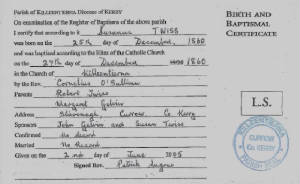 Parish of KILLEENTIERNA Diocese of KERRY
On examination of the Register of Baptisms of the above parish
I certify that according to it Susanna TWISS
was born on the 25th day of December, 1860
and was baptised according to the Rites of the Catholic Church
on the 27th day of December 1860
in the Church of Killeentierna
by the Rev. Cornelius O'Sullivan
Parents Robert Twiss
Margaret Galvin
Address Currow, Co Kerry
Sponsors John Galvin and Susan Twiss
Confirmed No Record
Married No Record
Given on the 2nd day of June
Signed Rev. Patrick
BIRTH AND
BAPTISMAL
CERTIFICATE
L.S.
KILLEENTIERNA
CURROW
Co. KERRY